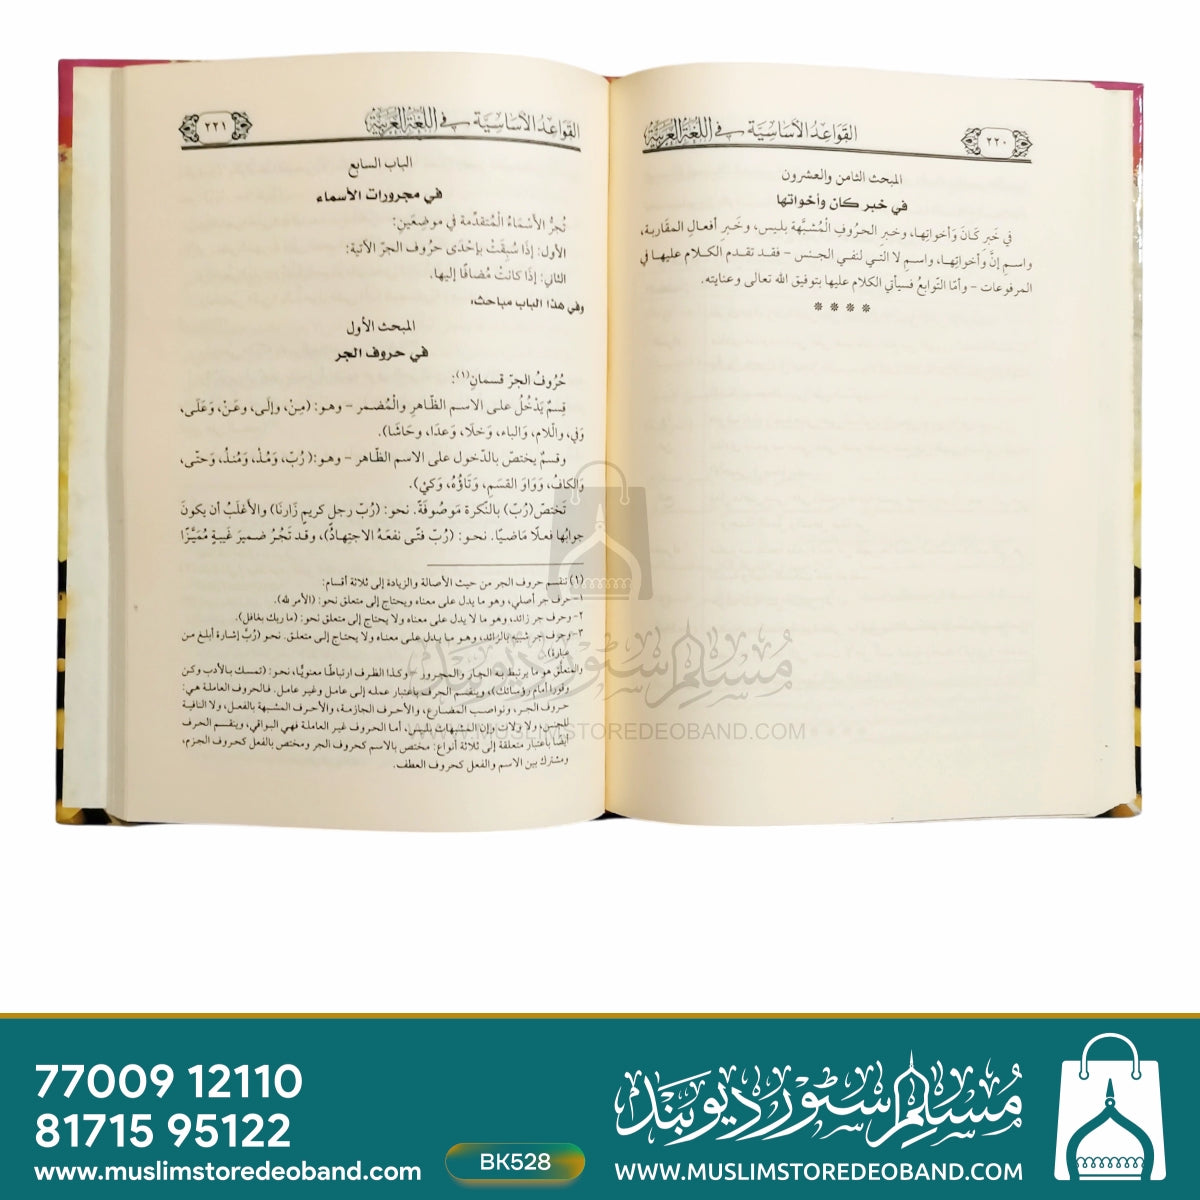 القَوَاعِدُ الأَسَاسِيَّة في اللُّغَةِ العَرَبِيَّة
٢٢٠
المبحث الثامن والعشرون
في خبر كان وأخواتها
في خَبر كَانَ وَأخواتِها، وخبرِ الحرُوفِ الْمُشبَّهة بليس، وخَبرِ أفعالِ المقَاربة،
واسمِ إنَّ وَأخواتِها، واسمِ لا التي لنفي الجنس – فقد تقدم الكلام عليها في
المرفوعات – وأمّا التّوابعُ فسيأتي الكلام عليها بتوفيق الله تعالى وعنايته.
* * * *
القَوَاعِدُ الأَسَاسِيَّة في اللُّغَةِ العَرَبِيَّة
٢٢١
الباب السابع
في مجرورات الأسماء
تُجرُّ الأَسْمَاءُ الْمُتقدِّمة في موضِعَينِ:
الأول: إذَا سُبِقَتْ بإحْدَى حرُوف الجرّ الآتية:
الثاني: إذَا كانتْ مُضافًا إليها.
وفي هذا الباب مباحث:
المبحث الأول
في حروف الجر
حُرُوفُ الجرّ قسمانِ(١):
قِسمٌ يَدْخُلُ على الاسم الظّاهرِ والْمُضمر – وهو: (مِنْ، وإلَى، وعَنْ، وَعَلَى،
وَفي، والّلام، وَالباء، وَخلَا، وَعدَا، وحَاشَا).
وقسمٌ يختصّ بالدّخول على الاسم الظّاهر – وهو: (رُبّ، وَمُذْ، وَمُنذُ، وَحتى،
وَالكافُ، وَوَاوَ القسَمِ، وَتَاؤُهُ، وَكيْ).
تَختصّ (رُبّ) بالنّكرة مَوصُوفَةً. نحو: (رُبّ رجلٍ كريمٍ زَارنَا) والأغلبُ أن يكونَ
جوابُها فعلًا مَاضيًا. نحو: (رُبّ فتًى نفعَهُ الاجتِهادُ)، وقد تَجُرّ ضميرَ غَيبةٍ مُمَيَّزًا
(١) تنقسم حروف الجر من حيث الأصالة والزيادة إلى ثلاثة أقسام:
١- حرف جر أصلي، وهو ما يدل على معناه ويحتاج إلى متعلق نحو: (الأمر لله).
٢- وحرف جر زائد، وهو ما لا يدل على معناه ولا يحتاج إلى متعلق نحو: (ما ربك بغافل).
٣- وحرف جر شبيه بالزائد، وهو ما يدل على معناه ولا يحتاج إلى متعلق. نحو (رُبَّ إشارة أبلغ من
عبارة)
والمتعلق هو ما يرتبط به الجار والمجرور – وكذا الظرف ارتباطًا معنويًّا، نحو: (تمسك بالأدب وكن
وقورا أمام رؤسائك)، وينقسم الحرف باعتبار عمله إلى عامل وغير عامل. فالحروف العاملة هي:
حروف الجر، ونواصب المضارع، والأحرف الجازمة، والأحرف المشبهة بالفعل، ولا النافية
للجنس، ولا ولات وإن المشبهات بليس، أما الحروف غير العاملة فهي البواقي، وينقسم الحرف
أيضًا باعتبار متعلقة إلى ثلاثة أنواع: مختص بالاسم كحروف الجر ومختص بالفعل كحروف الجزم،
ومشترك بين الاسم والفعل كحروف العطف.
مسلم سٹور دیوبند
WWW.MUSLIMSTOREDEOBAND.COM
77009 12110
81715 95122
www.muslimstoredeoband.com
BK528
مسلم سٹور دیوبند
WWW.MUSLIMSTOREDEOBAND.COM